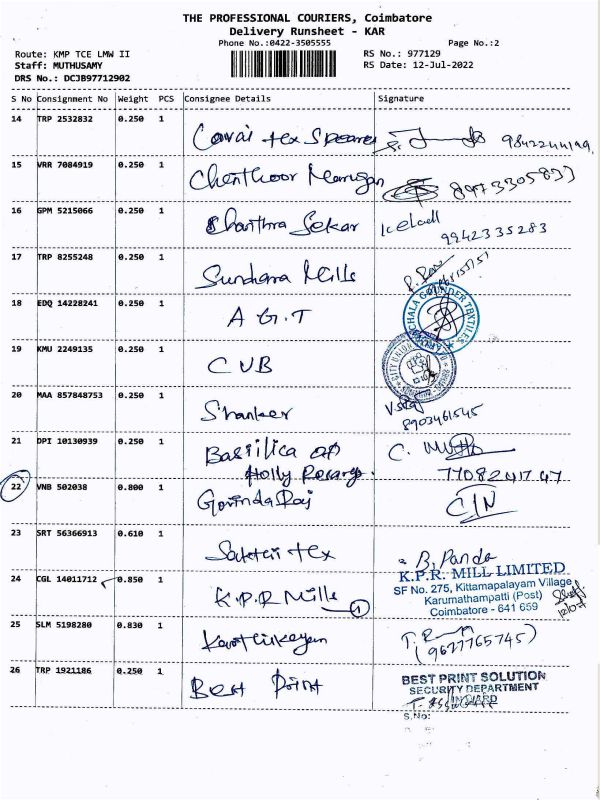 THE PROFESSIONAL COURIERS, Coimbatore
Delivery Runsheet - KAR
Phone No.:0422-3505555
Page No.:2
Route: KMP TCE LMW II
RS No.: 977129
Staff: MUTHUSAMY
RS Date: 12-Jul-2022
DRS No.: DCJB97712902
S No Consignment No Weight PCS Consignee Details Signature
14 TRP 2532832 0.250 1 tex
15 VRR 7084919 0.250 1 Murugan
16 GPM 5215066 0.250 1 Charithra Sekar
9942335283
17 TRP 8255248 0.250 1 Sundara Mills
18 EDQ 14228241 0.250 1 A G.T
19 KMU 2249135 0.250 1 CUB
CITY UNION
20 MAA 857848753 0.250 1 Shanker
8903461545
21 DPI 10130939 0.250 1 Basilica of C. Muth
Holly Rosary. 7708241747
22 VNB 502038 0.800 1 GovindaRaj
23 SRT 56366913 0.610 1 Sakthi tex B. Panda
24 CGL 14011712 0.850 1 K.P.R Mills 1
K.P.R. MILL LIMITED
SF No. 275, Kittampalayam Village
Karumathampatti (Post)
Coimbatore - 641 659
25 SLM 5198280 0.830 1 Karthikeyan
(9677765745)
26 TRP 1921186 0.250 1 Best Print
BEST PRINT SOLUTION
SECURITY DEPARTMENT
S.No: